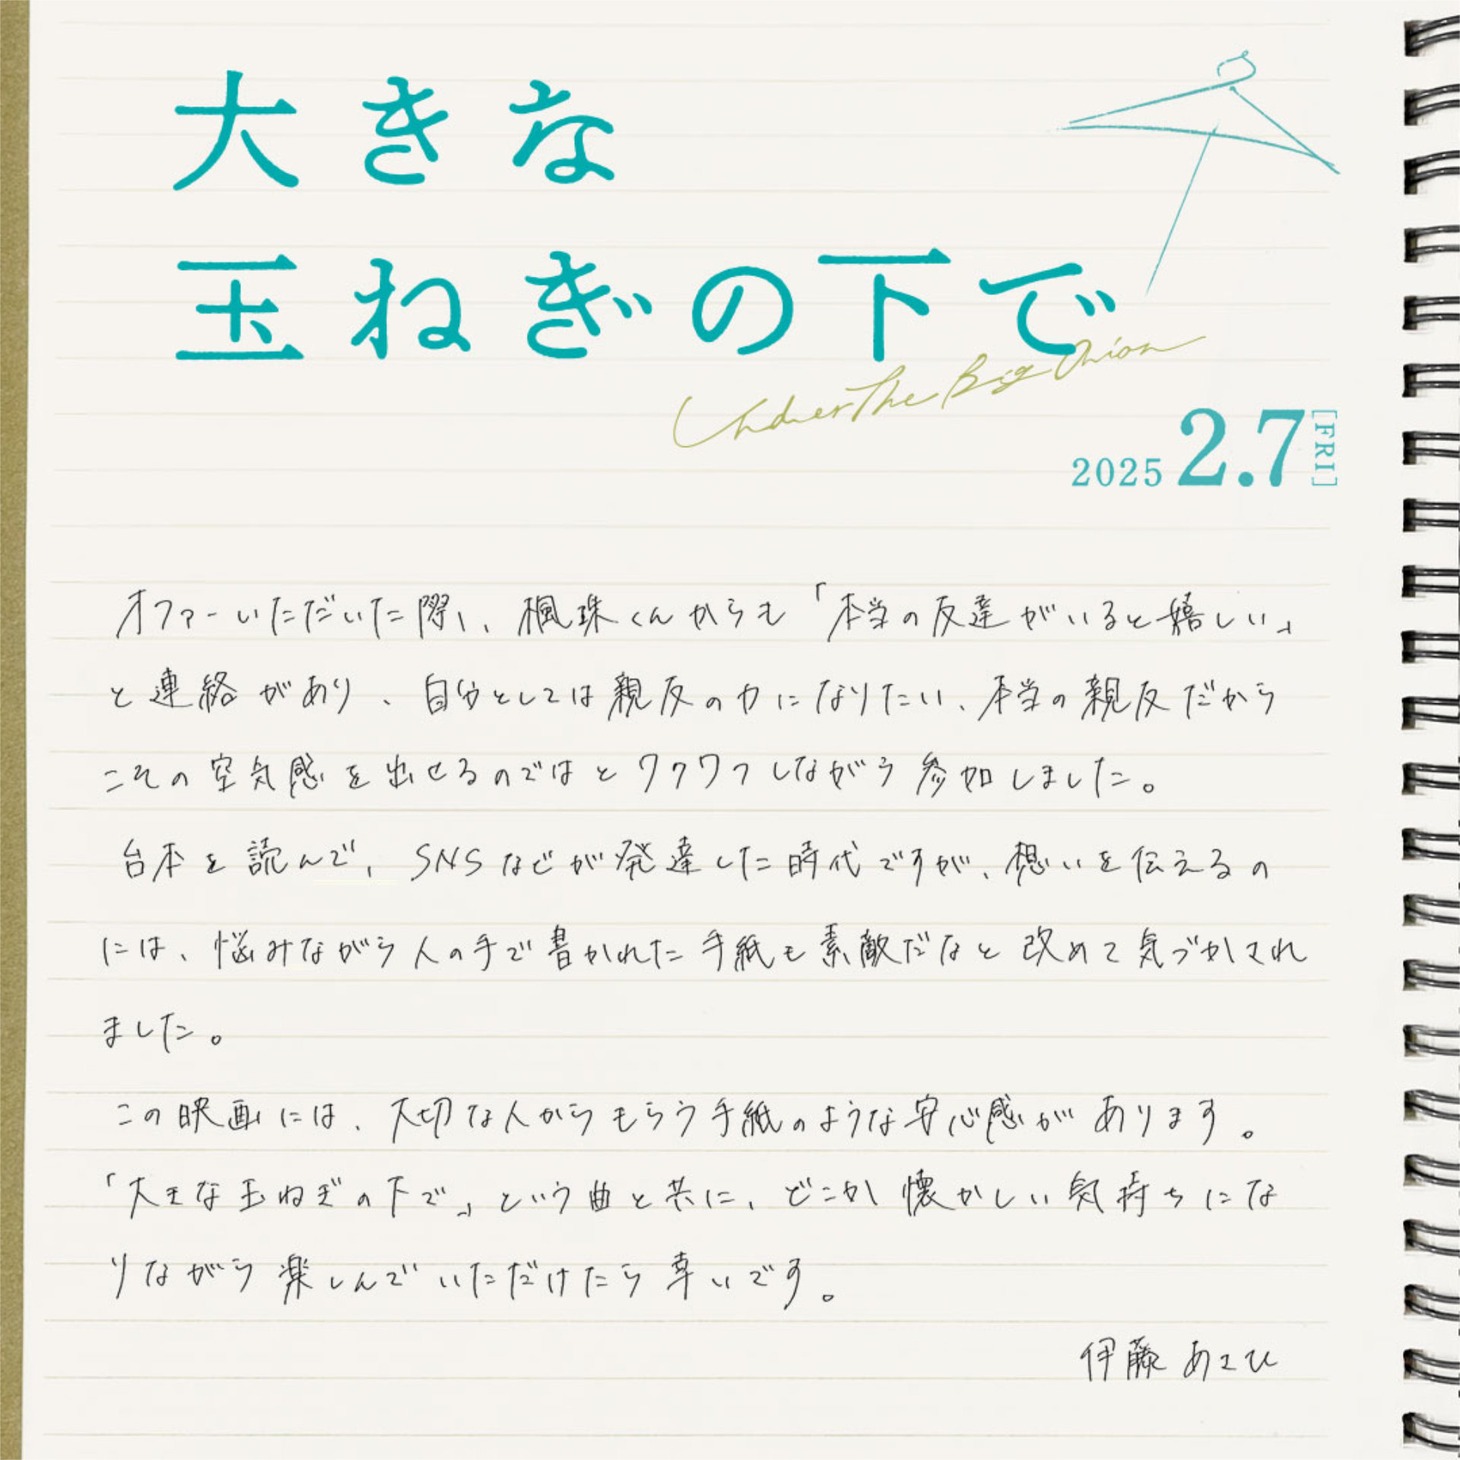 大きな
玉ねぎの下で
Under The Big Onion
2025 2.7 [FRI]
オファーいただいた際、楓珠くんからも「本当の友達がいると嬉しい」
と連絡があり、自分としては親友の力になりたい、本当の親友だから
こその空気感を出せるのではとワクワクしながら参加しました。
台本を読んで、SNSなどが発達した時代ですが、想いを伝えるの
には、悩みながら人の手で書かれた手紙も素敵だなと改めて気づかされ
ました。
この映画には、大切な人からもらう手紙のような安心感があります。
「大きな玉ねぎの下で」という曲と共に、どこか懐かしい気持ちにな
りながら楽しんでいただけたら幸いです。
伊藤あさひ